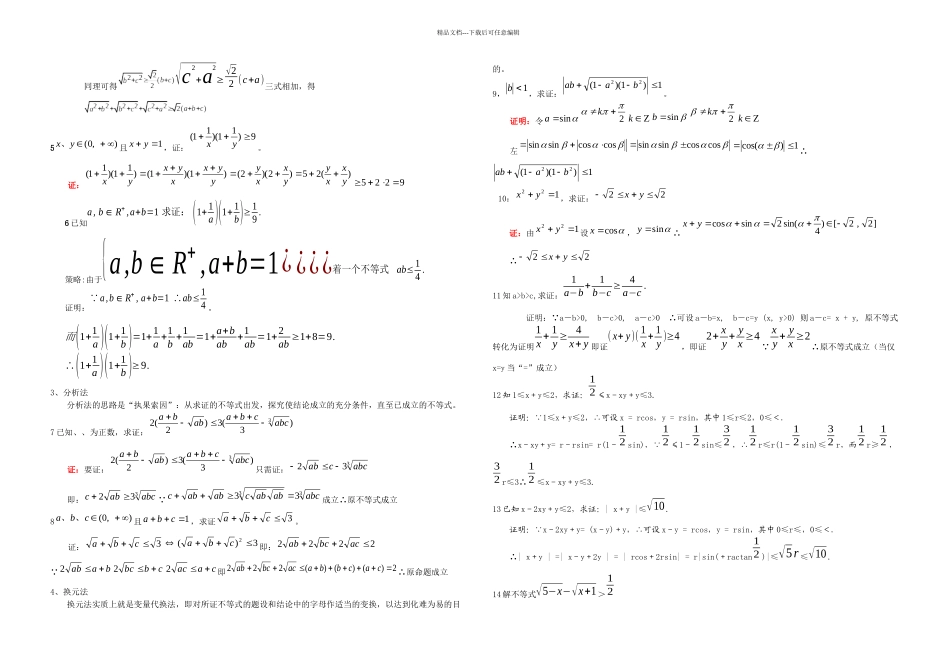 精品文档---下载后可任意编辑
同理可得 √(b²+c²) ≥ √2/2 (b+c) √(c²+a²) ≥ √2/2 (c+a) 三式相加，得
√(a²+b²)+√(b²+c²)+√(c²+a²) ≥ √2(a+b+c)
5 x、y∈(0, +∞) 且 x+y=1，证：(1+1/x)(1+1/y)≥9。
证: (1+1/x)(1+1/y)=(1+(x+y)/x)(1+(x+y)/y)=(2+y/x)(2+x/y)=5+2(y/x+x/y) ≥5+2·2=9
6 已知 a, b∈R⁺, a+b=1 求证：(1+1/a)(1+1/b)≥1/9.
策略:由于 {a,b∈R⁺,a+b=1¿¿¿¿着一个不等式 ab≤1/4.
证明：∵ a,b∈R⁺, a+b=1 ∴ab≤1/4。
而(1+1/a)(1+1/b)=1+1/a+1/b+1/ab=1+(a+b)/ab+1/ab=1+2/ab≥1+8=9.
∴(1+1/a)(1+1/b)≥9.
3、分析法
分析法的思路是“执果索因”：从求证的不等式出发，探究使结论成立的充分条件，直至已成立的不等式。
7 已知、、为正数，求证：2((a+b)/2 √ab) 3((a+b+c)/3 ∛abc)
证：要证：2((a+b)/2 √ab) 3((a+b+c)/3 ∛abc) 只需证：2√ab c 3∛abc
即：c+2√ab 3∛abc ∵ c+√ab+√ab 3∛(c√ab√ab)=3∛abc 成立∴原不等式成立
8 a、b、c∈(0, +∞) 且 a+b+c=1，求证 √a+√b+√c≤√3。
证：√a+√b+√c≤√3 ⇔ (√a+√b+√c)²≤3 即：2√ab+2√bc+2√ac≤2
∵2√ab≤a+b 2√bc≤b+c 2√ac≤a+c 即2√ab+2√bc+2√ac≤(a+b)+(b+c)+(a+c)=2 ∴原命题成立
4、换元法
换元法实质上就是变量代换法，即对所证不等式的题设和结论中的字母作适当的变换，以达到化难为易的目
的。
9，|b|<1，求证：|ab+√((1-a²)(1-b²))|≤1。
证明：令 a=sinα α≠kπ+π/2 k∈Z b=sinβ β≠kπ+π/2 k∈Z
左=|sinα sinβ+|cosα·cosβ||=|sinα sinβ±cosα cosβ|=|cos(α±β)|≤1 ∴
|ab+√((1-a²)(1-b²))|≤1
10：x²+y²=1，求证：-√2≤x+y≤√2
证：由 x²+y²=1 设 x=cosα，y=sinα ∴ x+y=cosα+sinα=√2sin(α+π/4)∈[-√2, √2]
∴-√2≤x+y≤√2
11 知 a>b>c,求证：1/(a-b)+1/(b-c)≥4/(a-c).
证明：∵a－b>0, b－c>0, a－c>0 ∴可设 a－b=x, b－c=y (x, y>0) 则 a－c= x + y, 原不等式
转化为证明 1/x+1/y≥4/(x+y) 即证(x+y)(1/x+1/y)≥4，即证 2+x/y+y/x≥4 ∵ x/y+y/x≥2 ∴原不等式成立（当仅
x=y 当“=”成立）
12 知 1≤x＋y≤2，求证：1/2≤x－xy＋y≤3.
证明：∵1≤x＋y≤2，∴可设 x = rcos，y = rsin，其中 1≤r≤2，0≤＜.
∴x－xy＋y= r－rsin= r(1－1/2sin)，∵1/2≤1－1/2sin≤3/2，∴1/2r≤r(1－1/2sin)≤3/2r，而1/2r≥1/2，
3/2r≤3∴1/2≤x－xy＋y≤3.
13 已知 x－2xy＋y≤2，求证：| x＋y |≤√10.
证明：∵x－2xy＋y= (x－y)＋y，∴可设 x－y = rcos，y = rsin，其中 0≤r≤，0≤＜.
∴| x＋y | =| x－y＋2y | = | rcos＋2rsin| = r|sin(＋ractan1/2)|≤√5 r≤√10.
14 解不等式√(5−x)−√(x+1)>1/2